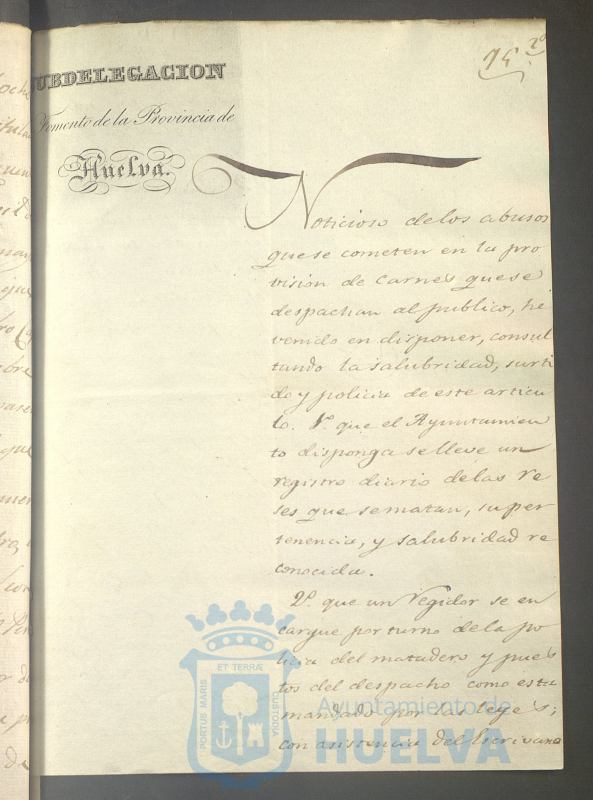 SUBDELEGACION
Fomento de la Provincia de
Huelva.
Noticioso de los abusos
que se cometen en la pro
vision de carnes que se
despachan al publico, he
venido en disponer, consul
tando la salubridad, surti
do y policia de este articu
lo. 1º que el Ayuntamien
to disponga se lleve un
registro diario de las re
ses que se matan, su per
tenencia, y salubridad re
conocida.
2º que un Regidor se en
cargue por turno de la po
licia del matadero y pues
tos del despacho como esta
mandado por las leyes;
con asistencia del Escrivano
ET TERRÆ
PORTUS MARIS
CUSTODIA
Ayuntamiento de
HUELVA